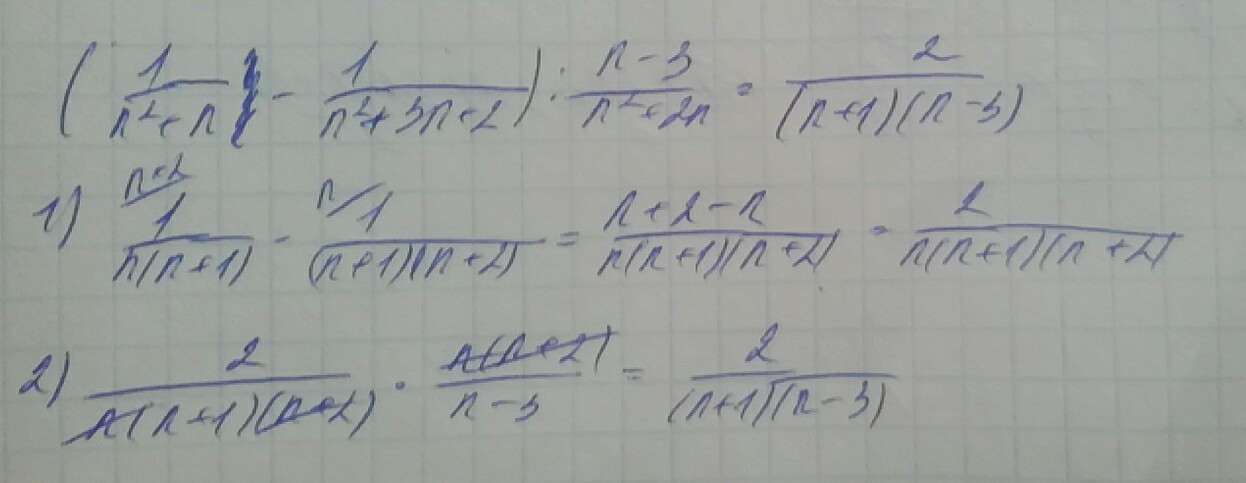 ( 1/(n²+n) - 1/(n²+3n+2) ) : (n-3)/(n²+2n) = 2/((n+1)(n-3))
1) n+2/ 1/(n(n+1)) - n/ 1/((n+1)(n+2)) = (n+2-n)/(n(n+1)(n+2)) = 2/(n(n+1)(n+2))
2) 2/(n(n+1)(n+2)) · n(n+2)/(n-3) = 2/((n+1)(n-3))